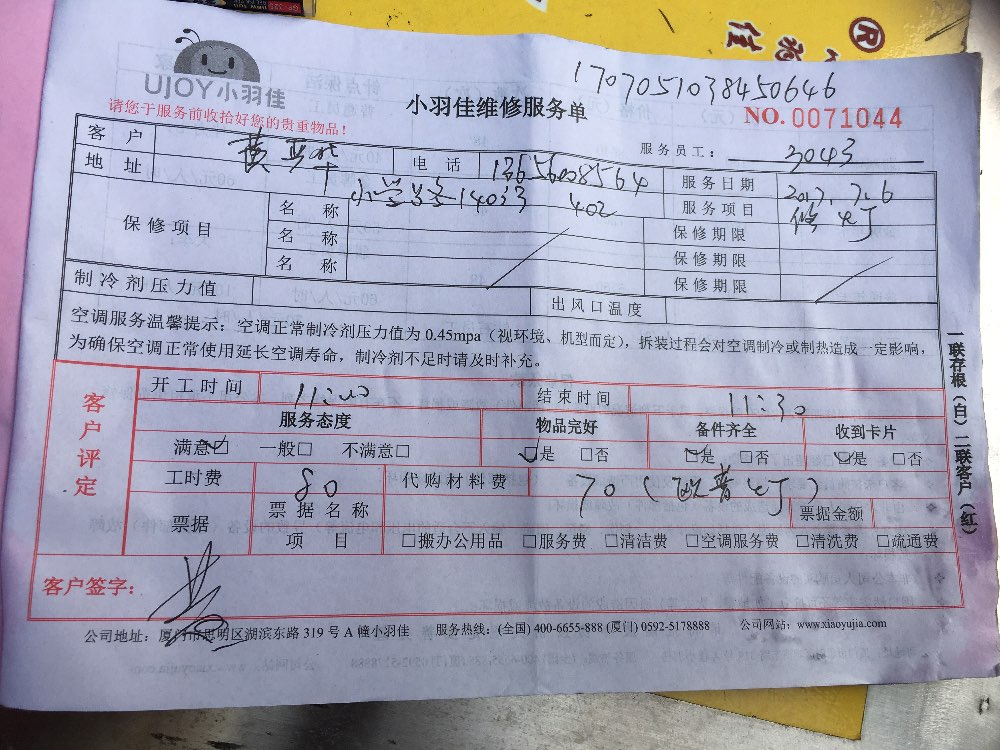 UJOY小羽佳
请您于服务前收拾好您的贵重物品！
小羽佳维修服务单
1707051038450646
NO. 0071044
服务员工： 3043
客户 黄 华 电话 服务日期 2017.7.6
地址 服务项目 修灯
保修项目 名称 保修期限
名称 保修期限
名称 保修期限
制冷剂压力值 出风口温度
空调服务温馨提示：空调正常制冷剂压力值为 0.45mpa（视环境、机型而定），拆装过程会对空调制冷或制热造成一定影响，
为确保空调正常使用延长空调寿命，制冷剂不足时请及时补充。
客户评定
开工时间 11:00 结束时间 11:30
服务态度 物品完好 备件齐全 收到卡片
满意☑ 一般□ 不满意□ ☑是 □否 ☑是 □否 ☑是 □否
工时费 80 代购材料费 70（欧普灯）
票据 票据名称 票据金额
项目 □搬办公用品 □服务费 □清洁费 □空调服务费 □清洗费 □疏通费
客户签字：
公司地址：厦门市思明区湖滨东路 319 号 A 幢小羽佳 服务热线：(全国) 400-6655-888 (厦门) 0592-5178888 公司网站：www.xiaoyujia.com
一联存根（白）二联客户（红）